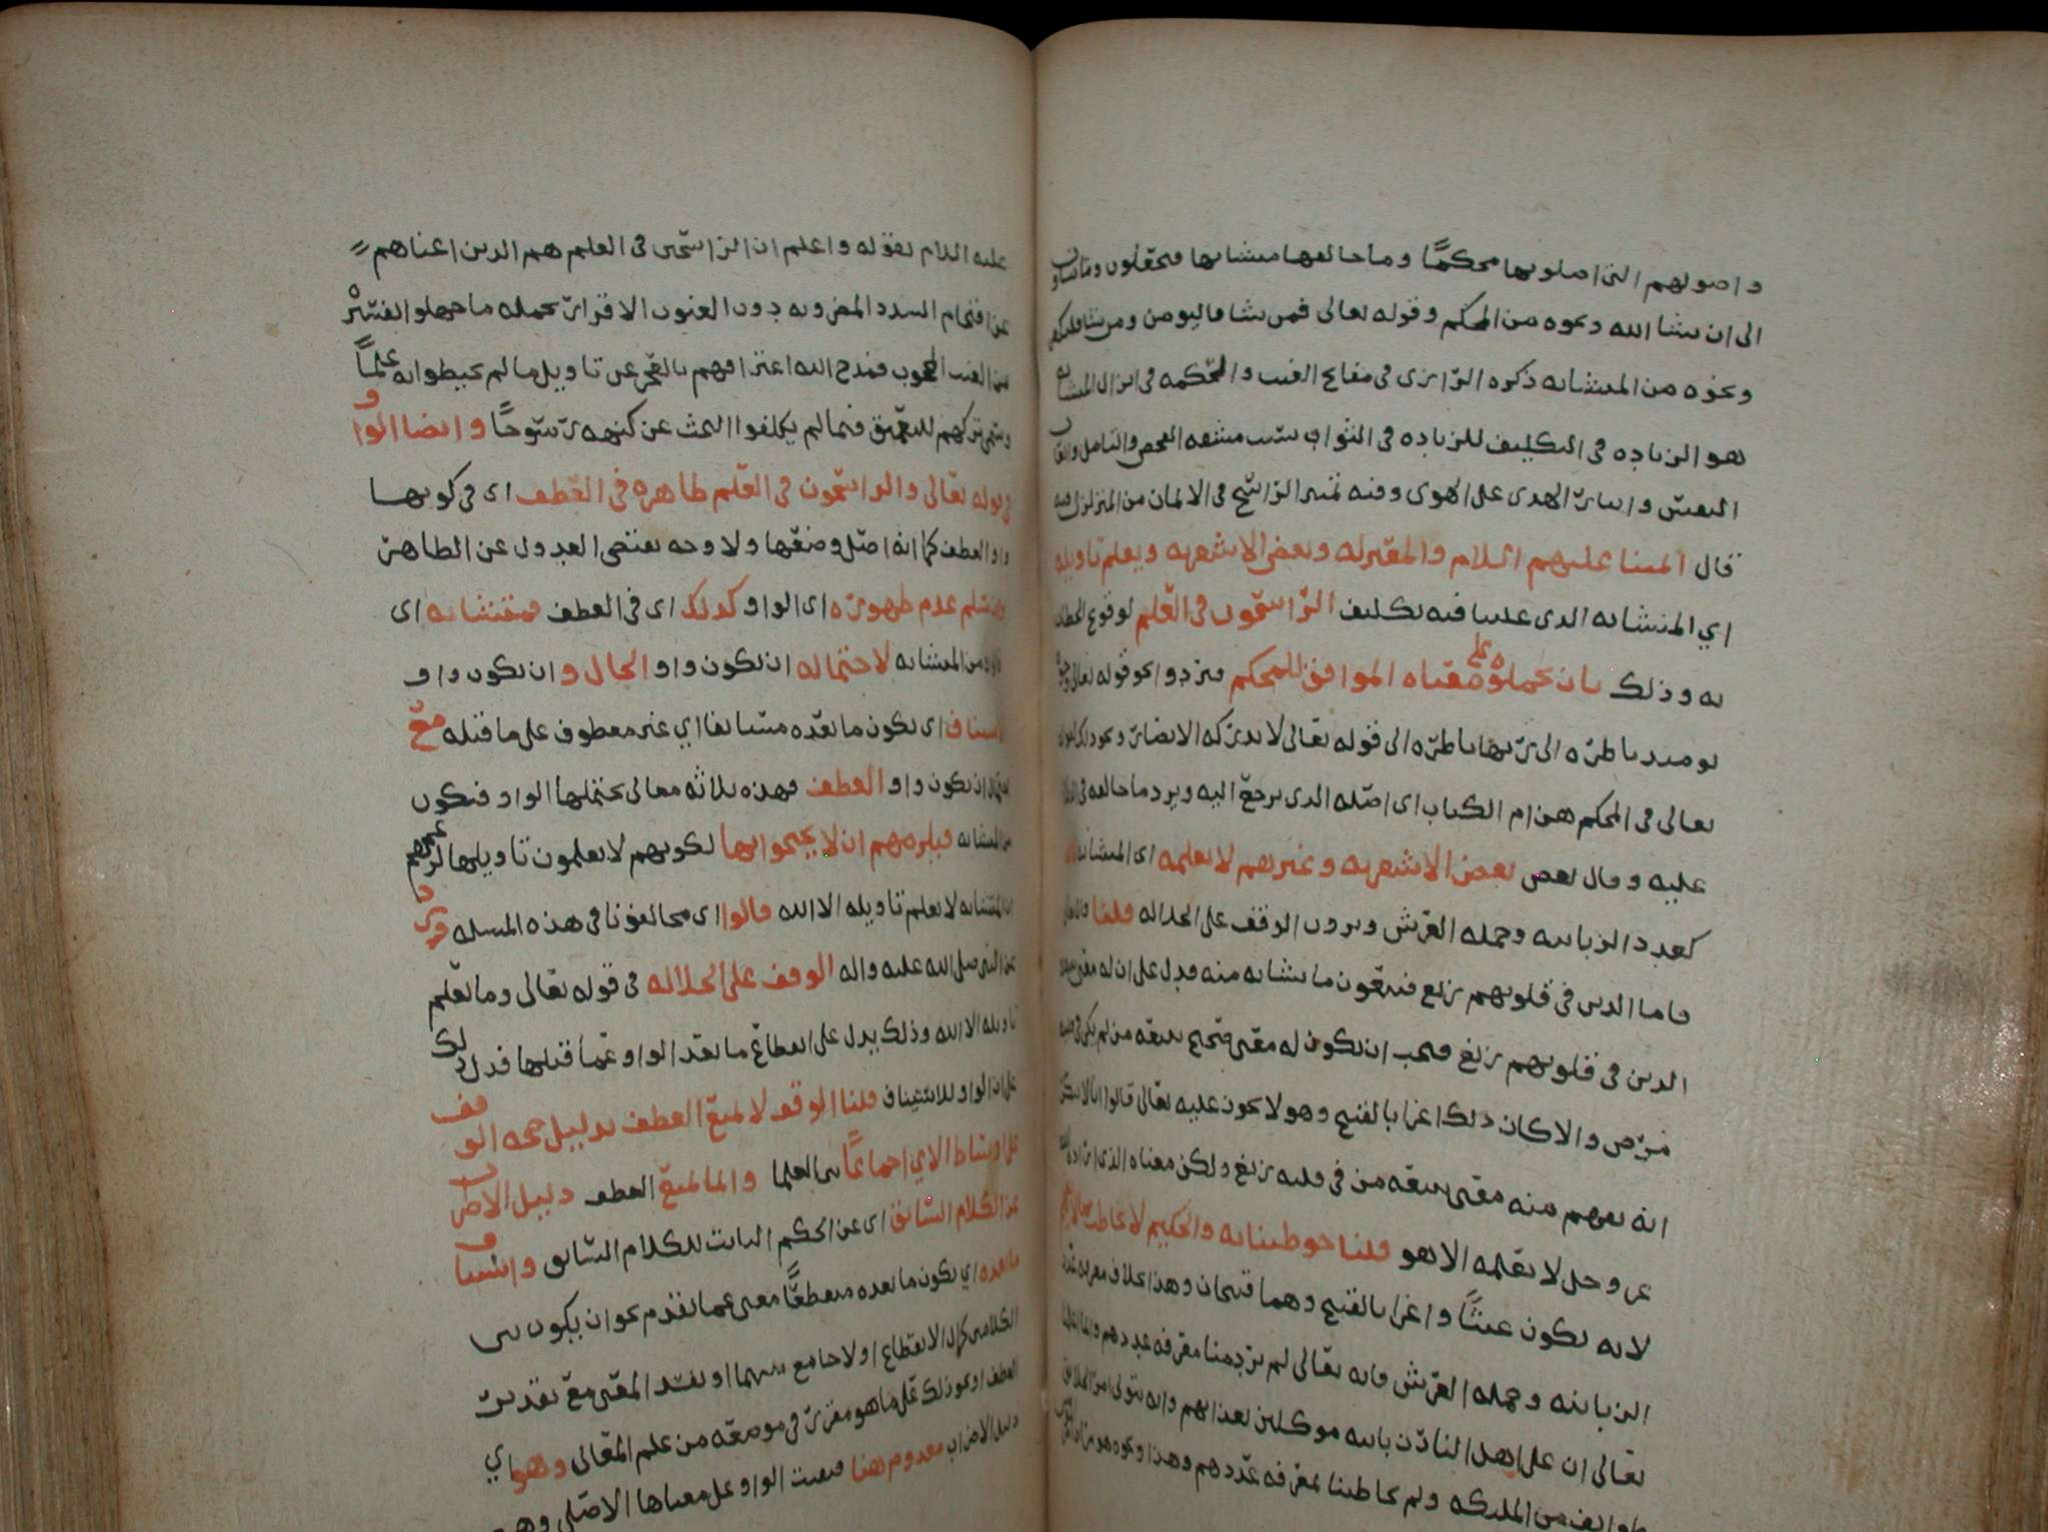 واصولهم التي اصلوها محكما وما خالفها متشابها فيحملون
الى ان يشا الله ونحوه من المحكم وقوله تعالى فمن شا فاليومن ومن شا فليكفر
ونحوه من المتشابه ذكره الرازي في مفاتح الغيب والحكمه في انزال المتشابه
هو الزياده في التكليف للزياده في الثواب بسبب مشقه الفحص والتامل واتعاب
النفس وايثار الهدى على الهوى وفيه تمييز الراسخ في الايمان من المتزلزل فيه
قال ائمتنا عليهم السلام والمعتزله وبعض الاشعريه ويعلم تاويله
اي المتشابه الذي علينا فيه تكليف الراسخون في العلم لوقوع الخطاب
به وذلك بان يحملوه على معناه الموافق للمحكم فيردوا نحو قوله تعالى وجوه
يوميذ ناظره الى ربها ناظره الى قوله تعالى لا تدركه الابصار ونحو ذلك لقوله
تعالى في المحكم هن ام الكتاب اي اصله الذي يرجع اليه ويرد ما خالفه في الظاهر
عليه وقال بعض بعض الاشعريه وغيرهم لا يعلمه اي المتشابه
كعدد الزبانيه وحمله العرش ويرون الوقف على الجلاله قلنا قال تعالى
فاما الذين في قلوبهم زيغ فيتبعون ما تشابه منه فدل على ان له معنى يتبعه
الذين في قلوبهم زيغ فيجب ان يكون له معنى صحيح يتبعه من لم يكن في قلبه
مرض والا كان ذلك اغرا بالقبيح وهو لا يجوز عليه تعالى قالوا انا لا ننكر
انه يفهم منه معنى يتبعه من في قلبه زيغ ولكن معناه الذي اراده الله
عز وجل لا يعلمه الا هو قلنا خوطبنا به والحكيم لا يخاطب بما لا يفهم
لانه يكون عبثا واغرا بالقبيح وهما قبيحان وهذا بخلاف معرفه عدد
الزبانيه وحمله العرش فانه تعالى لم يرد منا معرفه عددهم وانما اعلمنا
تعالى ان على اهل النار زبانيه موكلين بعذابهم وانه يتولى امر الخلايق
طوايف من الملئكه ولم يخاطبنا بمعرفه عددهم وهذا ونحوه هو
عليه السلام بقوله واعلم ان الراسخين في العلم هم الذين اغناهم
عن اقتحام السدد المضروبه دون الغيوب الاقرار بجمله ما جهلوا تفسيره
من الغيب المحجوب فمدح الله اعترافهم بالعجز عن تاويل ما لم يحيطوا به علما
وسمى تركهم للتعمق فيما لم يكلفوا البحث عن كنهه رسوخا وايضا الواو
في قوله تعالى والراسخون في العلم ظاهره في العطف اي في كونها
واو العطف كما انه اصل وضعها ولا وجه يقتضي العدول عن الظاهر
وان سلم عدم ظهوره اي الواو كذلك اي في العطف فمتشابه اي
فالواو من المتشابه لاحتماله ان يكون واو الحال وان يكون واو
الاستيناف اي يكون ما بعده مستانفا اي غير معطوف على ما قبله مع
احتمال ان يكون واو العطف فهذه ثلاثه معاني يحتملها الواو فيكون
من المتشابه فيلزمهم ان لا يحتجوا بها لكونهم لا يعلمون تاويلها لزعمهم
ان المتشابه لا يعلم تاويله الا الله قالوا اي مخالفونا في هذه المسئله روي
عن النبي صلى الله عليه واله الوقف على الجلاله في قوله تعالى وما يعلم
تاويله الا الله وذلك يدل على انقطاع ما بعد الواو عما قبلها فدل ذلك
على ان الواو للاستيناف قلنا الوقف لا يمنع العطف بدليل صحه الوقف
على اوساط الاي اجماعا من العلما وانما يمنع العطف دليل الاضراب
عن الكلام السابق اي عن الحكم الثابت للكلام السابق واستيناف
ما بعده اي يكون ما بعده منقطعا معنى عما تقدم نحو ان يكون بين
الكلامين كمال الانقطاع اولا جامع بينهما او يفسد المعنى مع تقدير
العطف او نحو ذلك على ما هو مقرر في موضعه من علم المعاني وهو اي
دليل الاضراب معدوم هنا فبقيت الواو على معناها الاصلي وهو